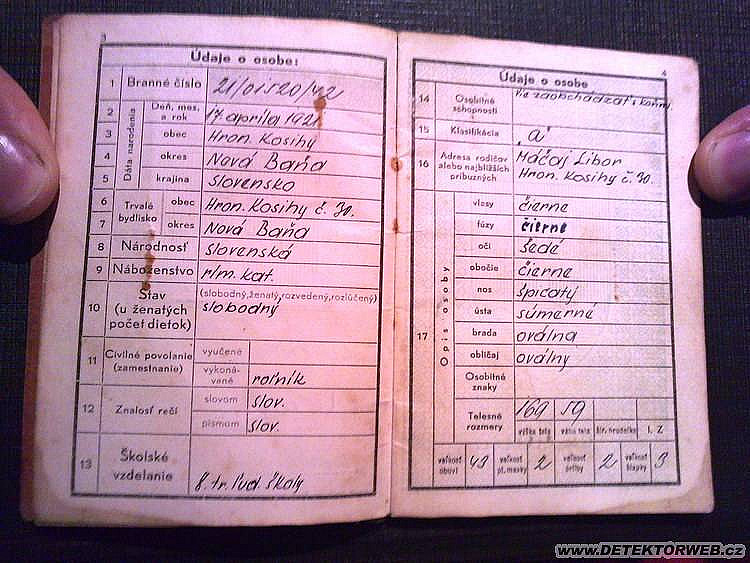 3
Údaje o osobe:
1 Branné číslo
2 Deň, mes. a rok 17 apríla 1921
Dáta narodenia
3 obec Hron. Kosihy
4 okres Nová Baňa
5 krajina Slovensko
6 Trvalé bydlisko obec Hron. Kosihy č. 30.
7 okres Nová Baňa
8 Národnosť slovenská
9 Náboženstvo r/m. kat.
10 Stav (u ženatých počet dietok) (slobodný, ženatý, rozvedený, rozlúčený)
slobodný
11 Civilné povolanie (zamestnanie) vyučené
vykonávané roľník
12 Znalosť rečí slovom slov.
písmom slov.
13 Školské vzdelanie 8. tr. ľud. školy
4
Údaje o osobe
14 Osobitné schopnosti Vie zaobchádzať s koňmi
15 Klasifikácia "A"
16 Adresa rodičov alebo najbližších príbuzných Máčaj Libor
Hron. Kosihy č. 30.
17 Opis osoby
vlasy čierne
fúzy čierne
oči šedé
obočie čierne
nos špicatý
ústa súmerné
brada oválna
obličaj oválny
Osobitné znaky
Telesné rozmery 169 59
výška tela váha tela šír. hrudníka I. Z
veľkosť obuvi 43 veľkosť pl. masky 2 veľkosť prilby 2 veľkosť čiapky 3
www.DETEKTORWEB.cz